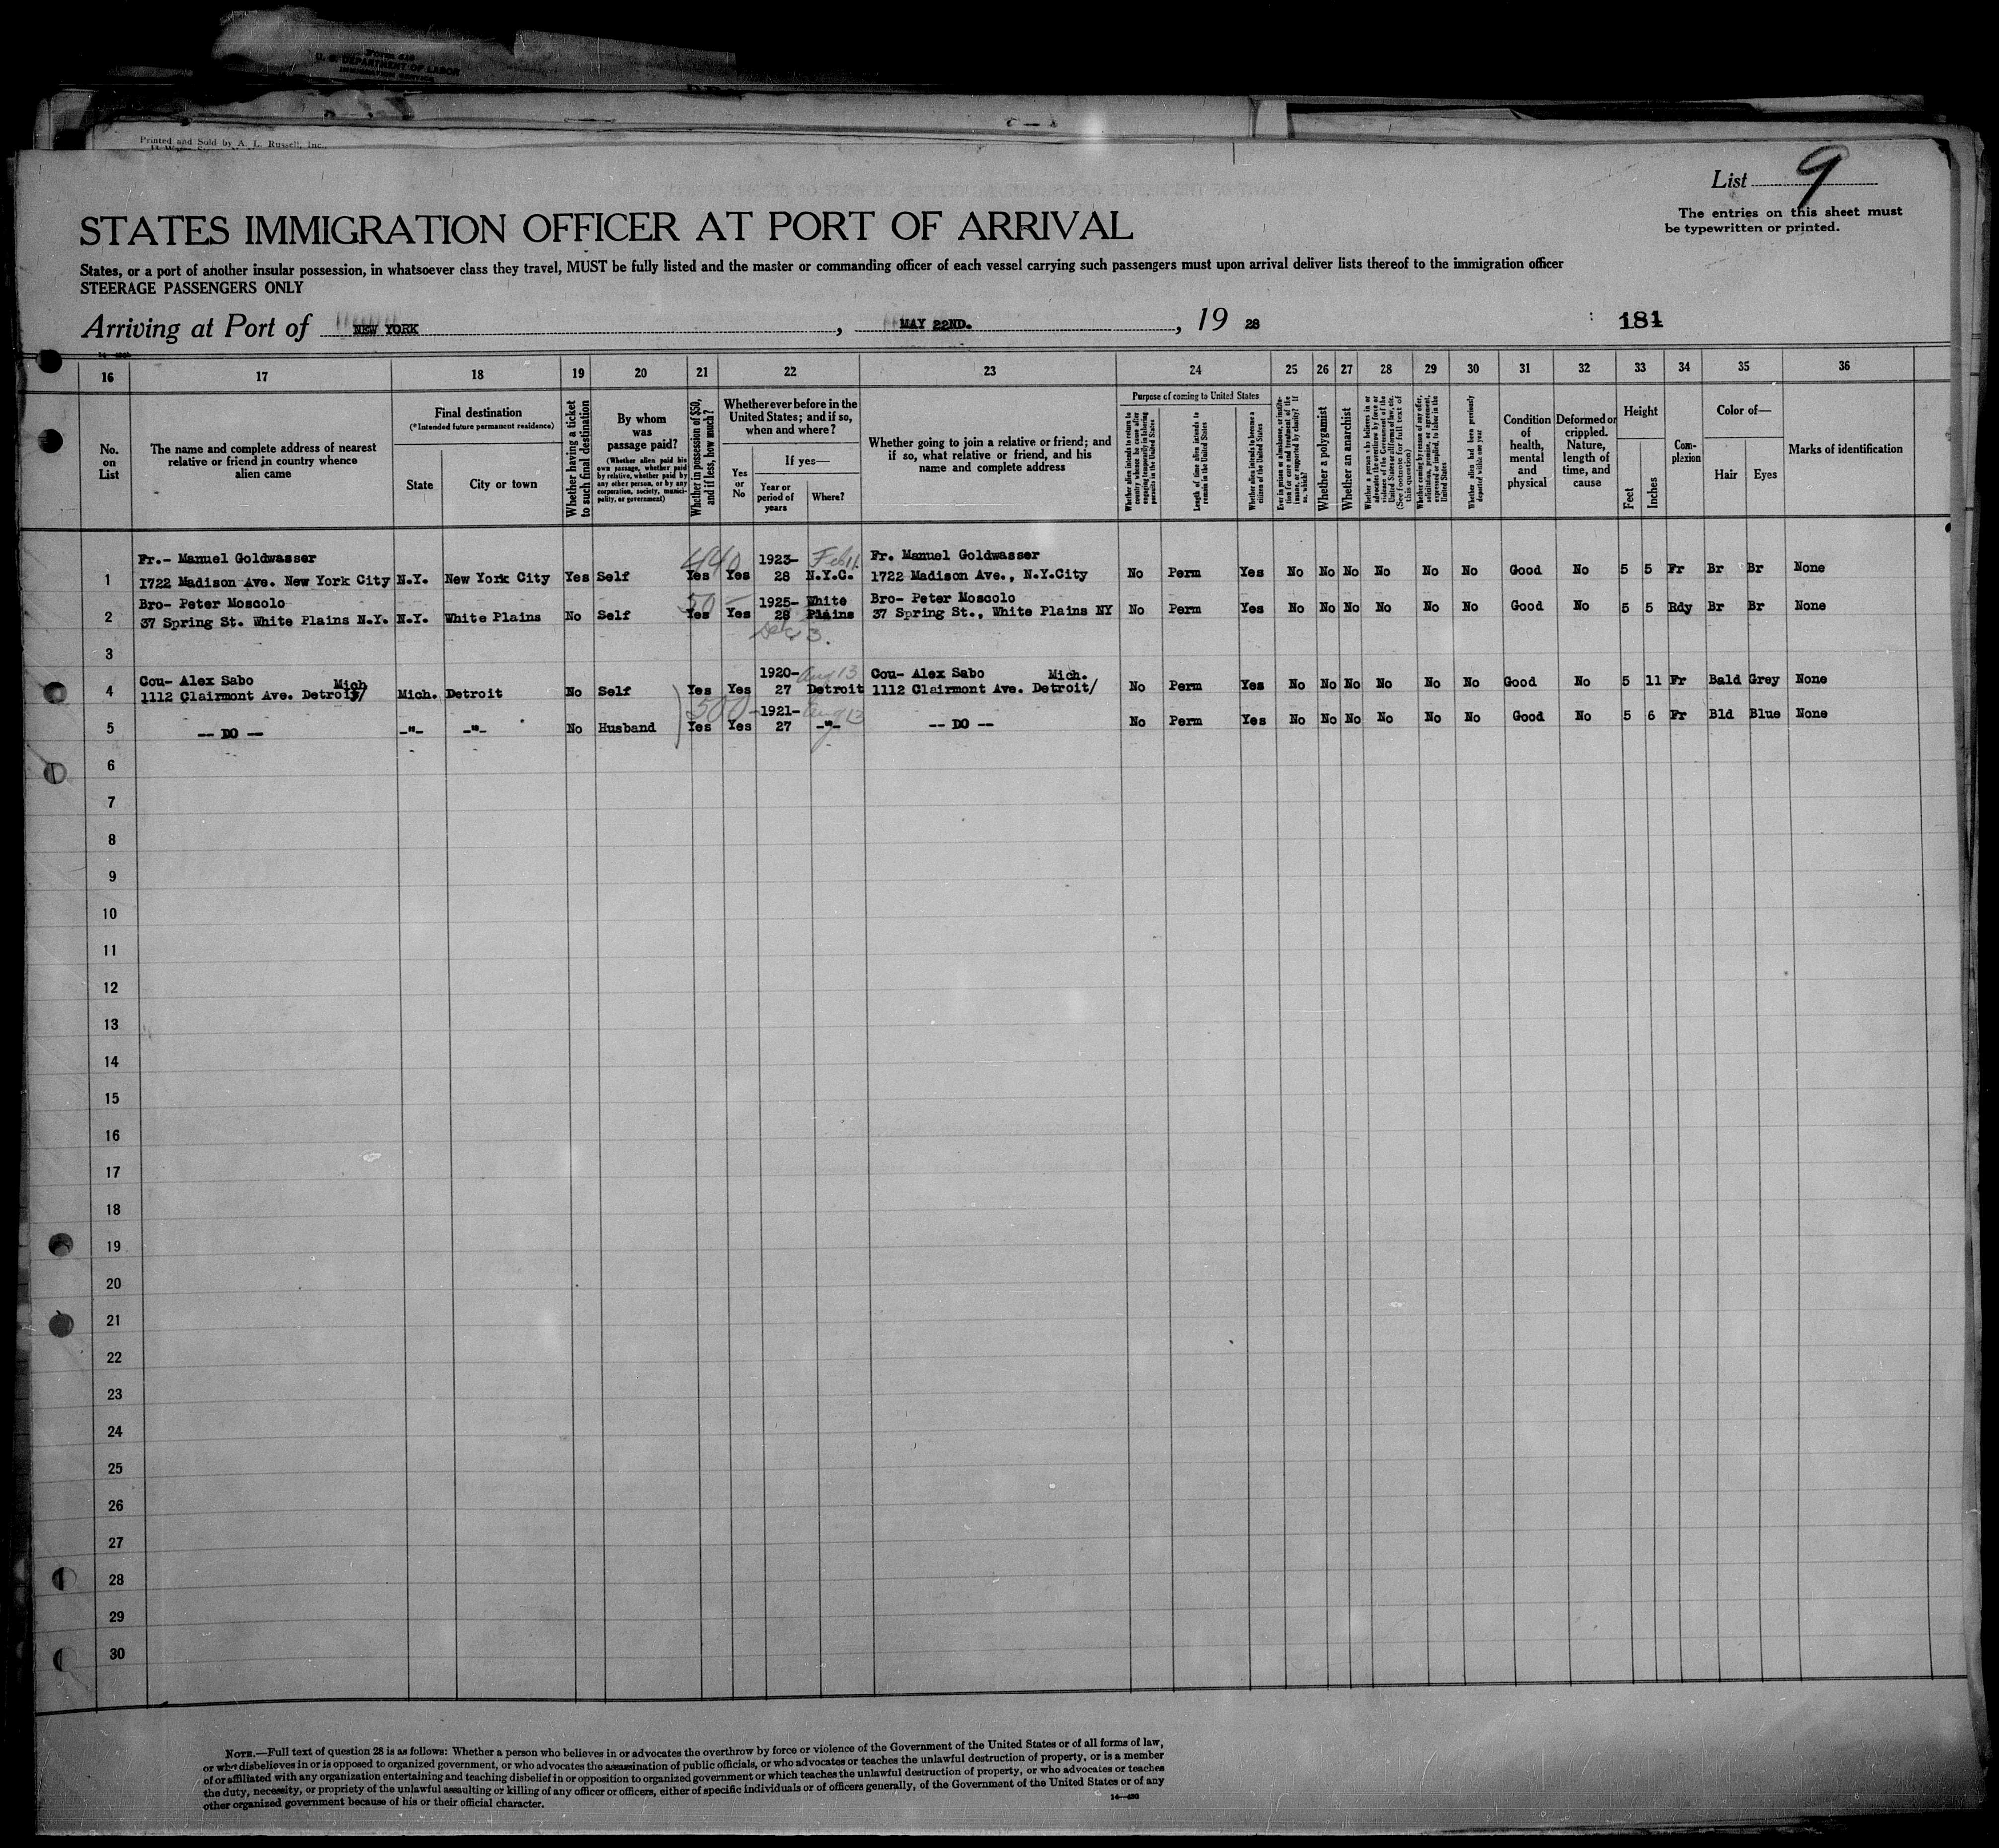 Form 418
U. S. DEPARTMENT OF LABOR
IMMIGRATION SERVICE
Printed and Sold by A. L. Russell, Inc.,
List 9
The entries on this sheet must
be typewritten or printed.
STATES IMMIGRATION OFFICER AT PORT OF ARRIVAL
States, or a port of another insular possession, in whatsoever class they travel, MUST be fully listed and the master or commanding officer of each vessel carrying such passengers must upon arrival deliver lists thereof to the immigration officer
STEERAGE PASSENGERS ONLY
Arriving at Port of NEW YORK, MAY 22ND., 19 28
181
16 17 18 19 20 21 22 23 24 25 26 27 28 29 30 31 32 33 34 35 36
No.
on
List
The name and complete address of nearest
relative or friend in country whence
alien came
Final destination
(*Intended future permanent residence)
State
City or town
Whether having a ticket
to such final destination
By whom
was
passage paid?
(Whether alien paid his
own passage, whether paid
by relative, whether paid by
any other person, or by any
corporation, society, munici-
pality, or government)
Whether in possession of $50,
and if less, how much?
Whether ever before in the
United States; and if so,
when and where?
Yes
or
No
If yes—
Year or
period of
years
Where?
Whether going to join a relative or friend; and
if so, what relative or friend, and his
name and complete address
Purpose of coming to United States
Whether alien intends to return to
country whence he came after
engaging temporarily in laboring
pursuits in the United States
Length of time alien intends to
remain in the United States
Whether alien intends to become a
citizen of the United States
Ever in prison or almshouse, or institu-
tion for care and treatment of the
insane, or supported by charity? If
so, which?
Whether a polygamist
Whether an anarchist
Whether a person who believes in or
advocates the overthrow by force or
violence of the Government of the
United States or all forms of law, etc.
(See footnote for full text of
this question)
Whether coming by reason of any offer,
solicitation, promise, or agreement,
expressed or implied, to labor in the
United States
Whether alien had been previously
deported within one year
Condition
of
health,
mental
and
physical
Deformed or
crippled.
Nature,
length of
time, and
cause
Height
Feet
Inches
Com-
plexion
Color of—
Hair
Eyes
Marks of identification
Fr.- Manuel Goldwasser 440 1923- Feb 11 Fr. Manuel Goldwasser
1 1722 Madison Ave. New York City N.Y. New York City Yes Self Yes Yes 28 N.Y.C. 1722 Madison Ave., N.Y.City No Perm Yes No No No No No No Good No 5 5 Fr Br Br None
Bro- Peter Moscolo 50- 1925- White Bro- Peter Moscolo
2 37 Spring St. White Plains N.Y. N.Y. White Plains No Self Yes Yes 28 Plains 37 Spring St., White Plains NY No Perm Yes No No No No No No Good No 5 5 Rdy Br Br None
3
Cou- Alex Sabo Mich 1920- Aug 13 Cou- Alex Sabo Mich.
4 1112 Clairmont Ave. Detroit/ Mich. Detroit No Self Yes Yes 27 Detroit 1112 Clairmont Ave. Detroit/ No Perm Yes No No No No No No Good No 5 11 Fr Bald Grey None
500- 1921- Aug 13
5 -- DO -- -"- -"- No Husband Yes Yes 27 -"- -- DO -- No Perm Yes No No No No No No Good No 5 6 Fr Bld Blue None
6
7
8
9
10
11
12
13
14
15
16
17
18
19
20
21
22
23
24
25
26
27
28
29
30
NOTE.—Full text of question 28 is as follows: Whether a person who believes in or advocates the overthrow by force or violence of the Government of the United States or of all forms of law,
or who disbelieves in or is opposed to organized government, or who advocates the assassination of public officials, or who advocates or teaches the unlawful destruction of property, or is a member
of or affiliated with any organization entertaining and teaching disbelief in or opposition to organized government or which teaches the unlawful destruction of property, or who advocates or teaches
the duty, necessity, or propriety of the unlawful assaulting or killing of any officer or officers, either of specific individuals or of officers generally, of the Government of the United States or of any
other organized government because of his or their official character.
14—430